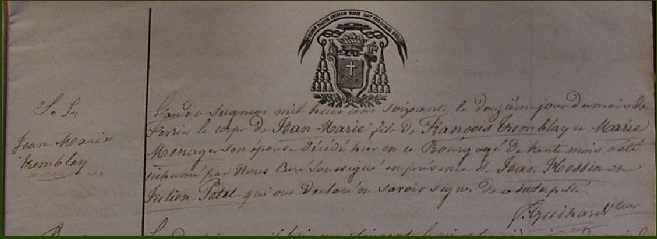 S. S.
Jean Marie
Tremblay
L'an du Seigneur mil huit cens soixante le douzième jour du mois de
Fevrier le corps de Jean Marie fils de François Tremblay et Marie
Menager son épouse décédé hier en ce Bourg agé de trente mois a été
inhumé par Nous Curé Soussigné en présence de Jean Hessin et
Julien Patel qui ont declaré ne savoir signer de ce interpellé.
J. Guihard